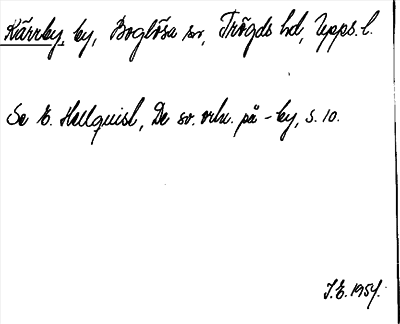 Kärrby, by, Boglösa sn, Trögds hd, Upps. l.
Se E. Hellquist, De sv. ortn. på -by, s. 10.
J.E. 1954.